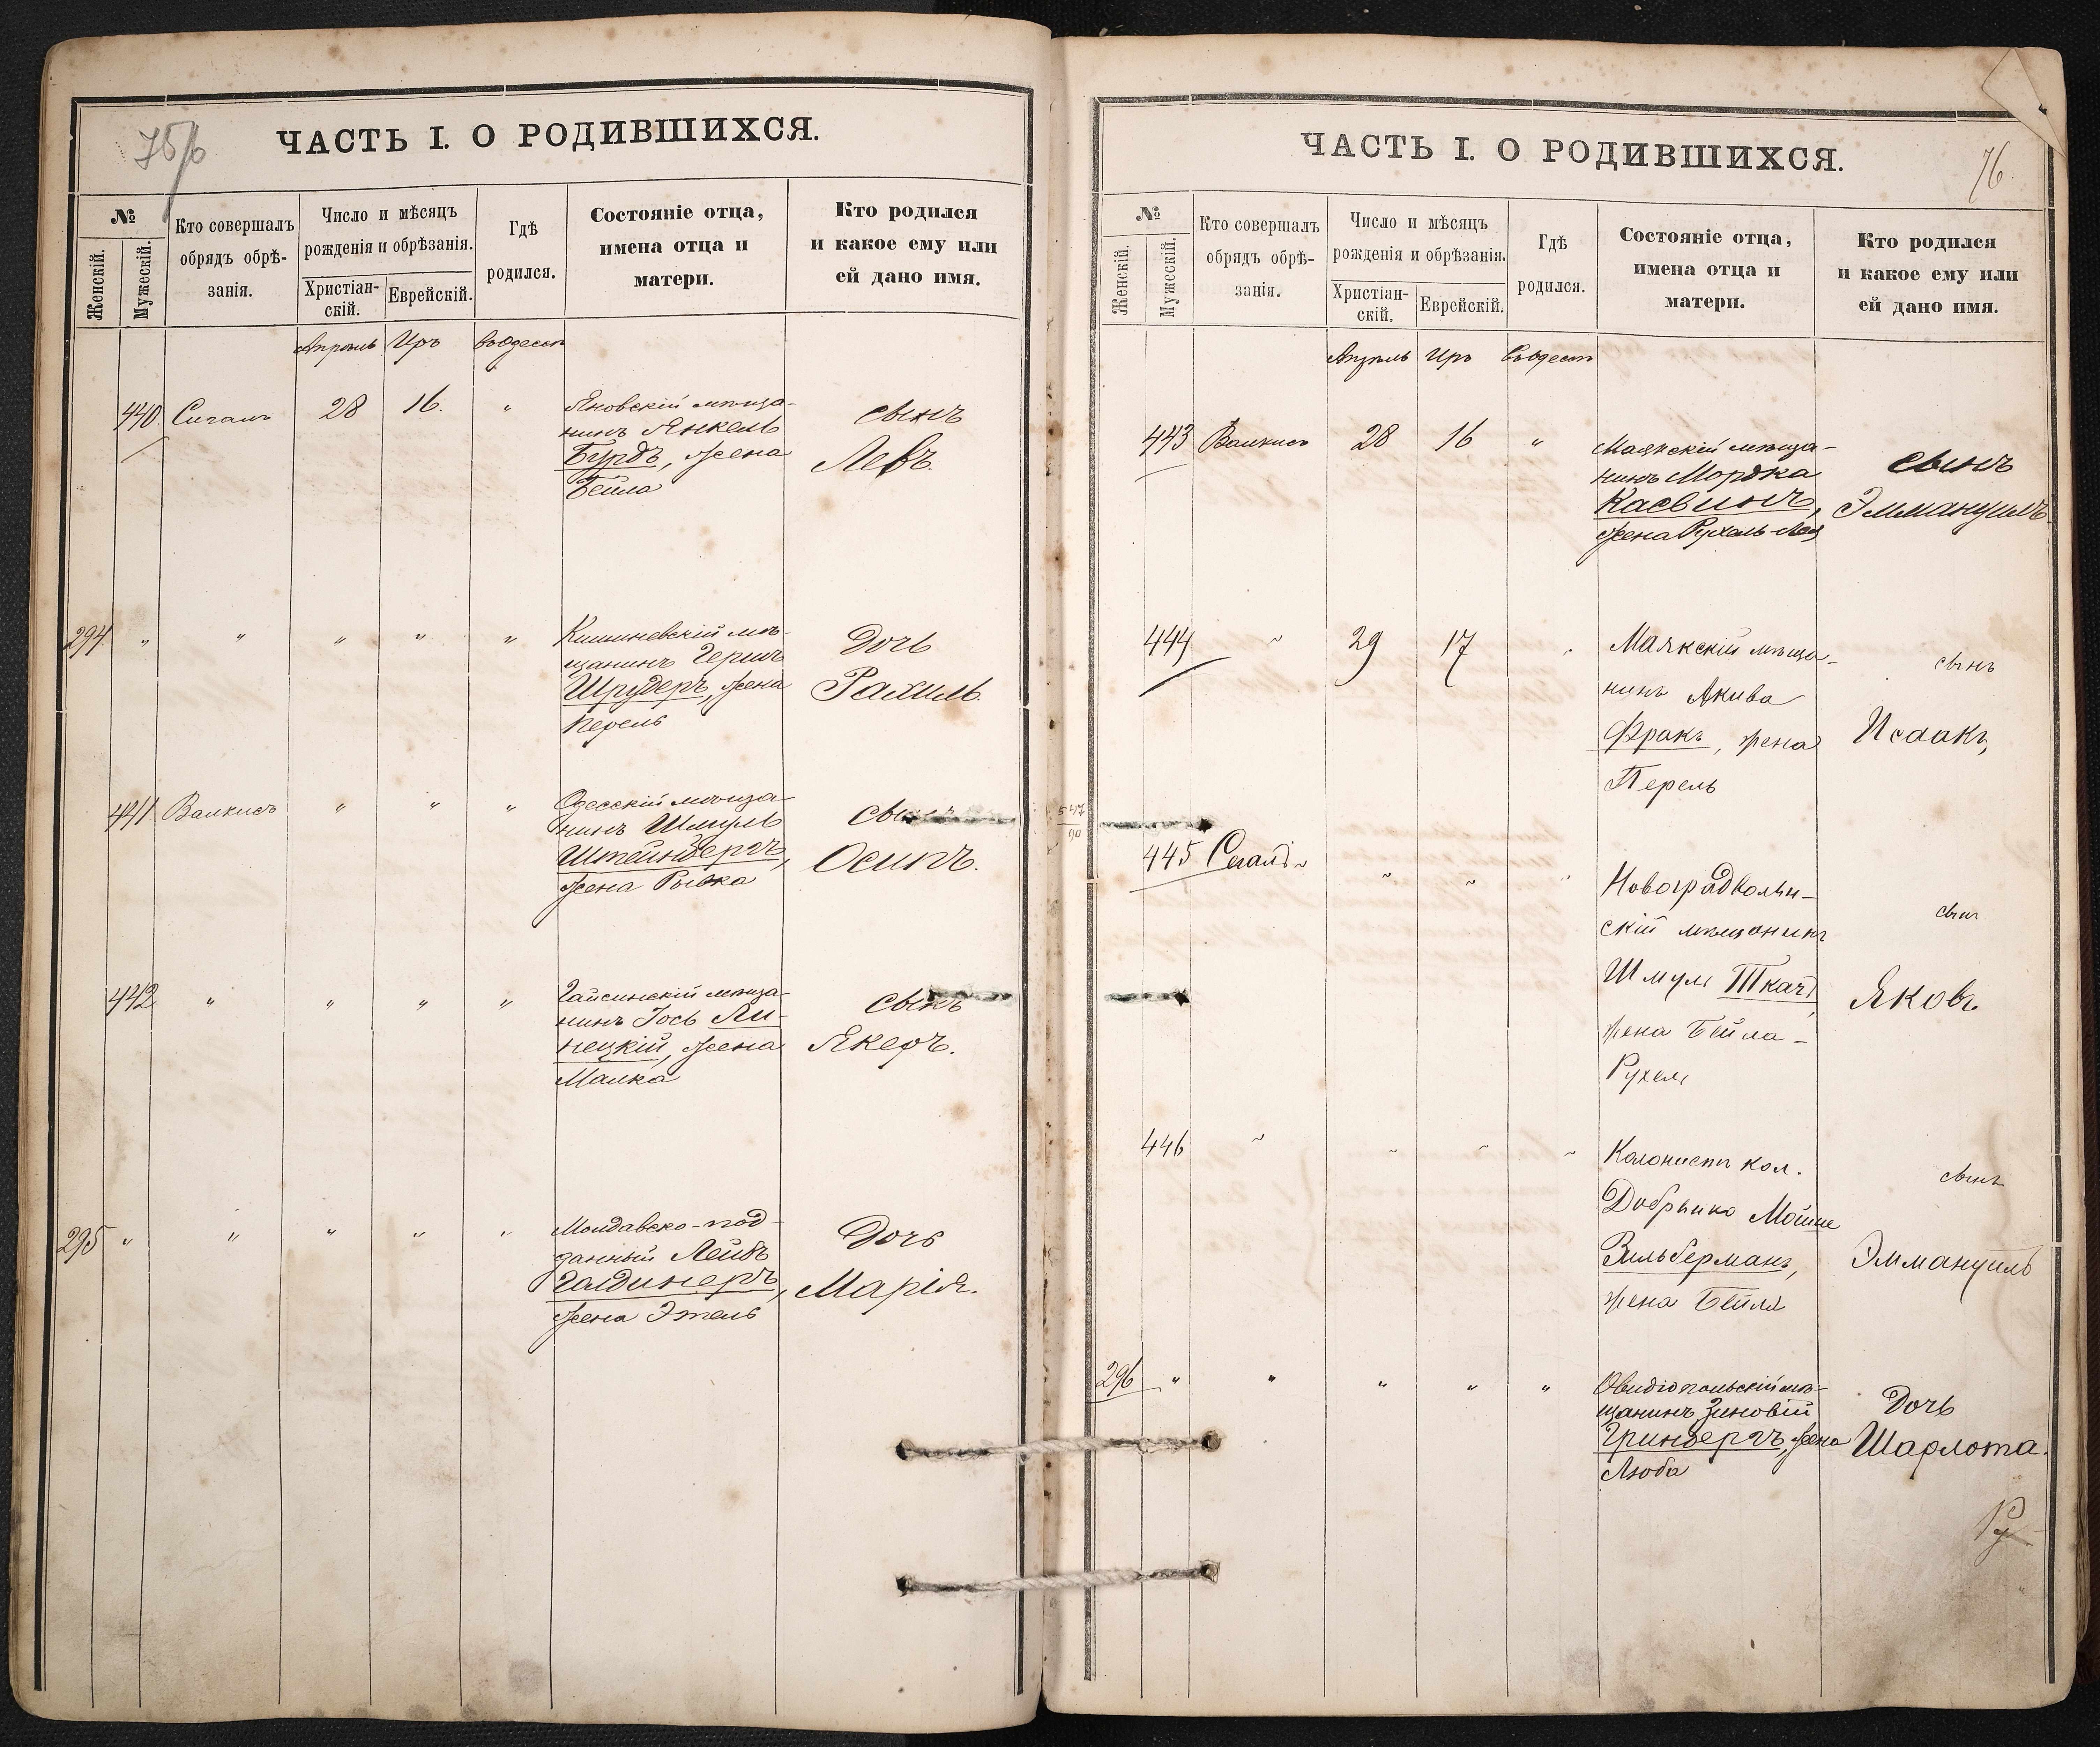 75/б
ЧАСТЬ I. О РОДИВШИХСЯ.
№
Женскій.
Мужескій.
Кто совершалъ
обрядъ обрѣ-
занія.
Число и мѣсяцъ
рожденія и обрѣзанія.
Христіан-
скій.
Еврейскій.
Гдѣ
родился.
Состояніе отца,
имена отца и
матери.
Кто родился
и какое ему или
ей дано имя.
Апрѣль Иръ Въ Одессѣ
440 Сигалъ 28 16. " Яновскій мѣща-
нинъ Янкель
Бурдъ, жена
Бейла
сынъ
Левъ.
294 " " " " " Кишиневскій мѣ-
щанинъ Гершъ
Шрудеръ, жена
Перель
Дочь
Рахиль.
441 Валкисъ " " " Одесскій мѣща-
нинъ Шмуль
Штейнбергъ,
жена Рывка
сынъ
Осипъ.
442 " " " " Гайсинскій мѣща-
нинъ Гось Ли-
нецкій, жена
Малка
сынъ
Якеръ.
295 " " " " " Молдавско-под-
данный Лейбъ
Голдинеръ,
жена Этель
Дочь
Марія.
ЧАСТЬ I. О РОДИВШИХСЯ.
76
№
Женскій.
Мужескій.
Кто совершалъ
обрядъ обрѣ-
занія.
Число и мѣсяцъ
рожденія и обрѣзанія.
Христіан-
скій.
Еврейскій.
Гдѣ
родился.
Состояніе отца,
имена отца и
матери.
Кто родился
и какое ему или
ей дано имя.
Апрѣль Иръ Въ Одессѣ
443 Валкисъ 28 16 " Маякскій мѣща-
нинъ Мордка
Касвинъ,
жена Рухель-Лея
сынъ
Эммануилъ.
444 " 29 17 " Маякскій мѣща-
нинъ Акива
Фракъ, жена
Перель
сынъ
Исаакъ
445 Сигалъ " " " Новоградволын-
скій мѣщанинъ
Шмуль Ткачъ,
жена Бейла-
Рухель
сынъ
Яковъ
446 " " " " Колонистъ кол.
Добрынко Мойше
Зильберманъ,
жена Бейля
сынъ
Эммануилъ
296 " " " " " Овидіопольскій мѣ-
щанинъ Зиновій
Гринбергъ, жена
Люба
Дочь
Шарлота.